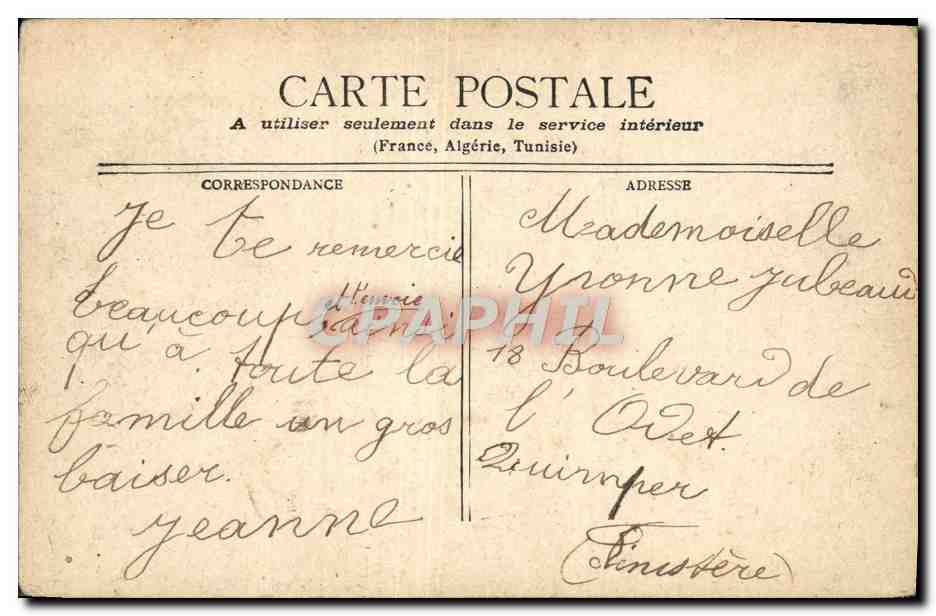 CARTE POSTALE
A utiliser seulement dans le service intérieur
(France, Algérie, Tunisie)
CORRESPONDANCE
Je te remercie
beaucoup et t'envoie ainsi
qu'à toute la
famille un gros
baiser.
Jeanne
ADRESSE
Mademoiselle
Yvonne Jubeau
18 Boulevard de
l'Odet
Quimper
(Finistère)
CPAPHIL